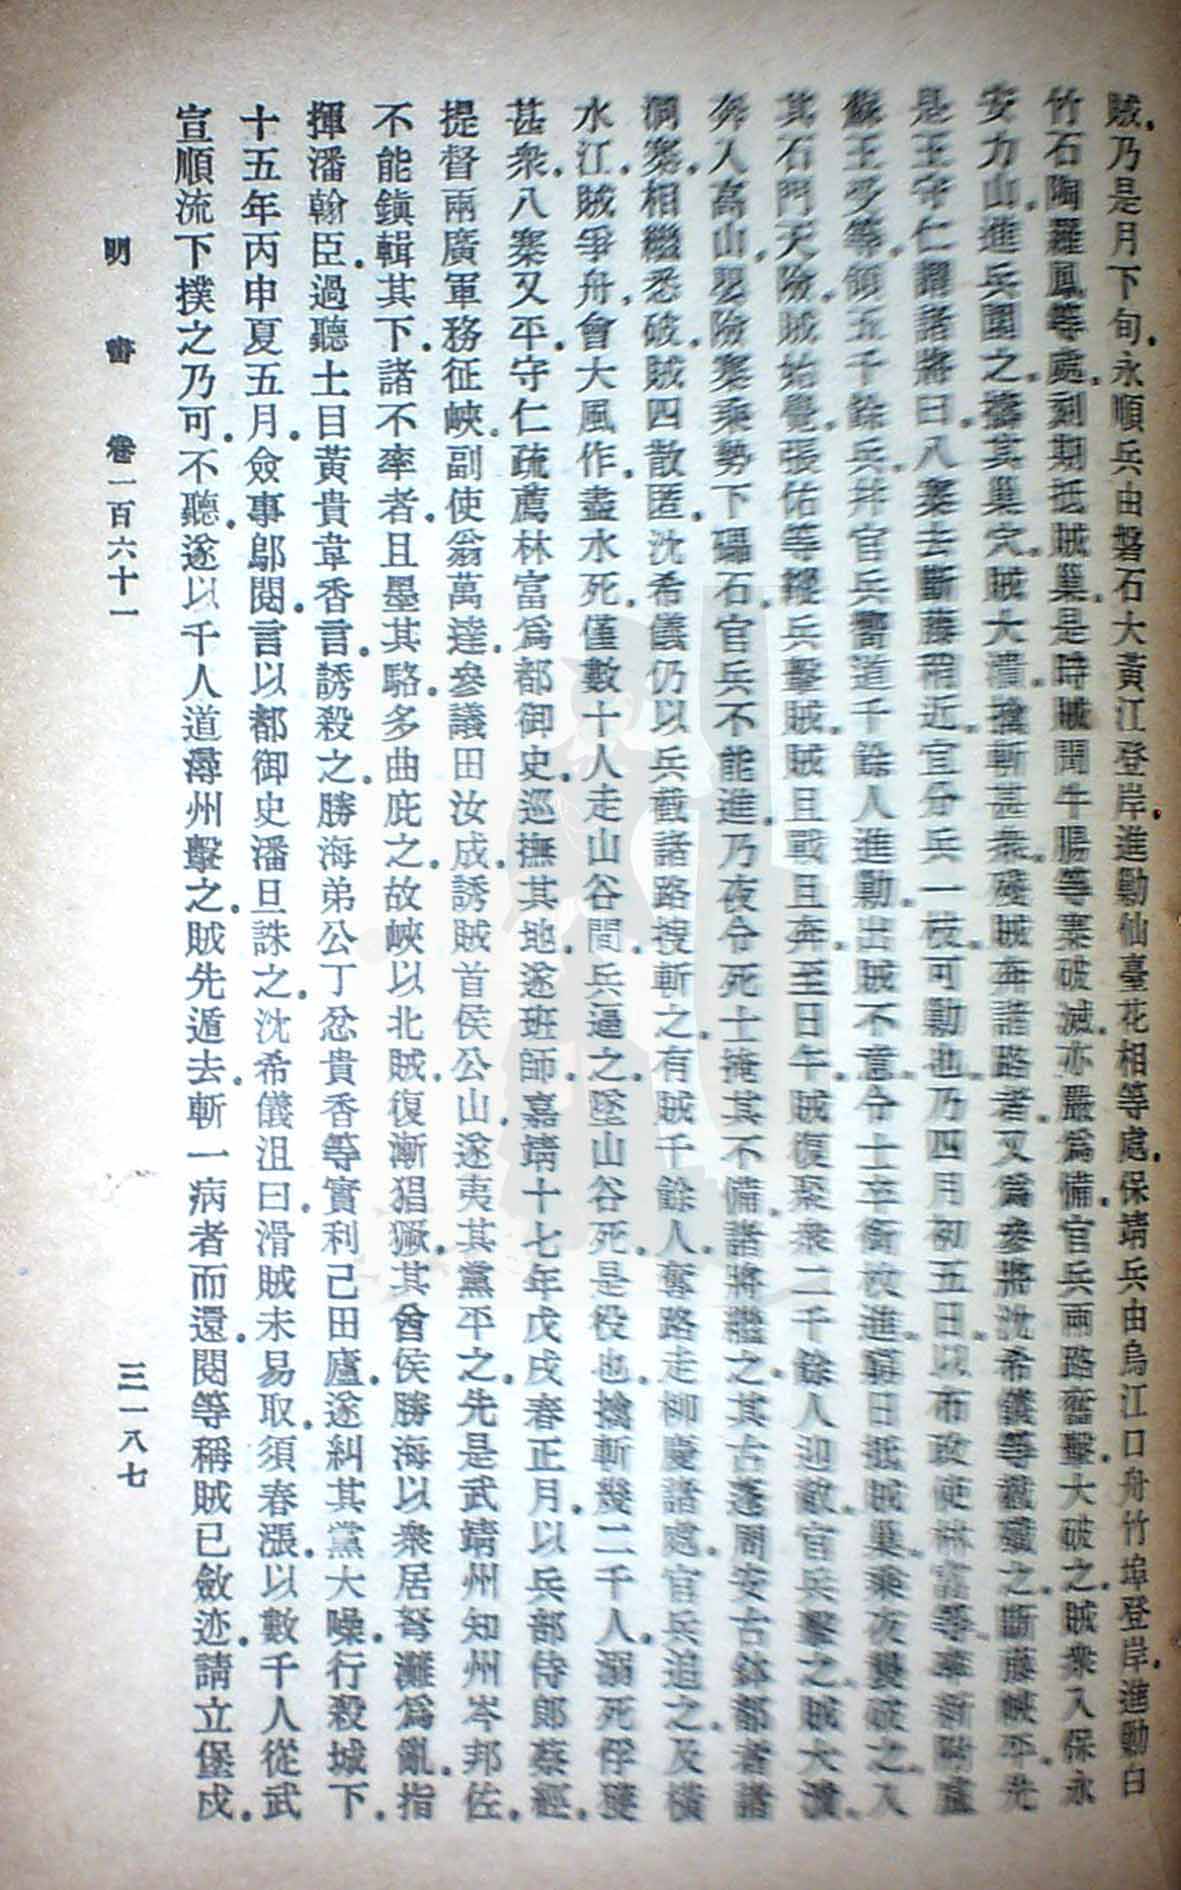 賊。乃是月下旬。永順兵由磐石大黃江登岸進勦仙臺花相等處。保靖兵由烏江口舟竹埠登岸。進勦白
竹石陶羅鳳等處。剋期抵賊巢。是時賊聞牛腸等寨破滅。亦嚴爲備。官兵兩路奮擊。大破之。賊衆入保永
安力山。進兵圍之。擣其巢穴。賊大潰。擒斬甚衆。殘賊奔諸路者。又爲參將沈希儀等截殲之。斷藤峽平。先
是王守仁謂諸將曰。八寨去斷藤稍近。宜分兵一枝。可勦也。乃四月初五日。以布政使林富等率新附盧
蘇王受等。領五千餘兵。幷官兵嚮道千餘人進勦。出賊不意。令士卒銜枚進。竊日抵賊巢。乘夜襲破之。入
其石門天險。賊始覺。張佑等縱兵擊賊。賊且戰且奔。至日午。賊復聚衆二千餘人迎敵。官兵擊之。賊大潰。
奔入高山。壘險寨乘勢下礧石。官兵不能進。乃夜令死士掩其不備。諸將繼之。其古蓬周安古鉢都者諸
洞寨。相繼悉破。賊四散匿。沈希儀仍以兵截諸路搜斬之。有賊千餘人。奪路走柳慶諸處。官兵追之。及橫
水江。賊爭舟。會大風作。盡水死。僅數十人走山谷間。兵逼之。墜山谷死。是役也。擒斬幾二千人。溺死俘獲
甚衆。八寨又平。守仁疏薦林富爲都御史。巡撫其地。遂班師。嘉靖十七年戊戌春正月。以兵部侍郎蔡經。
提督兩廣軍務征峽。副使翁萬達。參議田汝成。誘賊首侯公山。遂夷其黨平之。先是武靖州知州岑邦佐。
不能鎭輯其下。諸不率者。且墨其賂。多曲庇之。故峽以北賊。復漸猖獗。其酋侯勝海以衆居弩灘爲亂。指
揮潘翰臣。過聽土目黃貴韋香言。誘殺之。勝海弟公丁忿貴香等實利己田廬。遂糾其黨大噪。行殺城下。
十五年丙申夏五月。僉事鄔閱。言以都御史潘旦誅之。沈希儀沮曰。滑賊未易取。須春漲。以數千人從武
宣順流下撲之乃可。不聽。遂以千人道潯州擊之。賊先遁去。斬一病者而還。閱等稱賊已斂迹。請立堡戍。
明書 卷一百六十一 三一八七